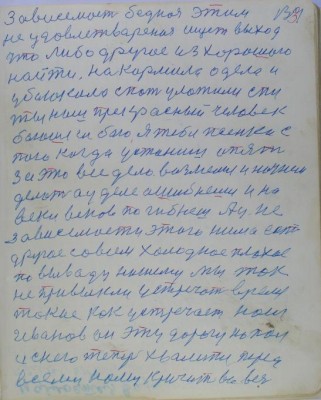 Зависемост бедноя этим
не удовлетвареная ищет выход
что либо другое из хорошого
найти, накормила одела и
убаюкала спот уложили спи
ты наш прекрасный человек
баюши ги баю я тебя песенки с
того когда устаниш опят
за то все дело возмеш и начниш
делот а у деле ошибнеш и на
веки веков погибнеш Ау. не
зависемости этого нима
другое совсем холодное плохое
по вываду нашему мы так
не привыкли устречат время
такие как устречает наш
иванов он эту дорогу
и снего тепер хвалити перед
всеми нами кричит во вез